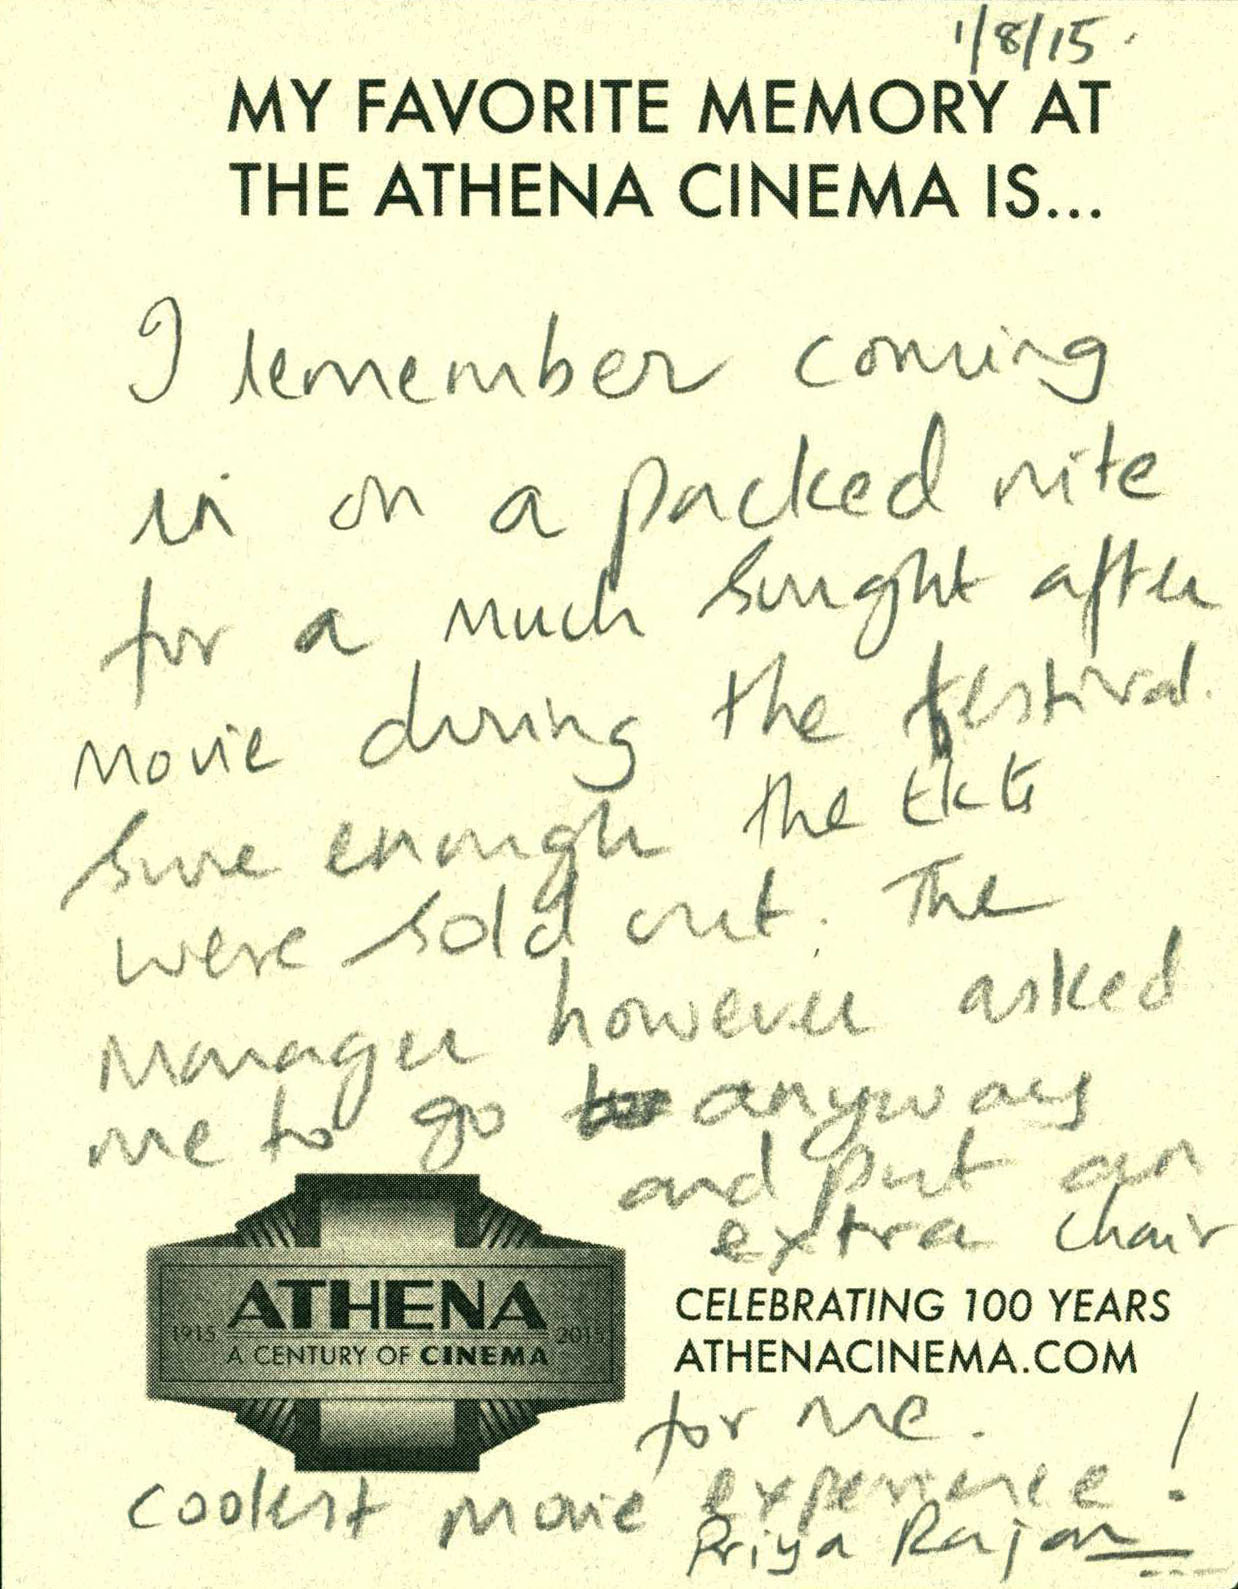 1/8/15
MY FAVORITE MEMORY AT
THE ATHENA CINEMA IS...
I remember coming
in on a packed nite
for a much sought after
movie during the festival.
Sure enough the tkts
were sold out. The
manager however asked
me to go anyways
and put an
extra chair
ATHENA
1915 2015
A CENTURY OF CINEMA
CELEBRATING 100 YEARS
ATHENACINEMA.COM
for me.
coolest movie experience!
Priya Rajan